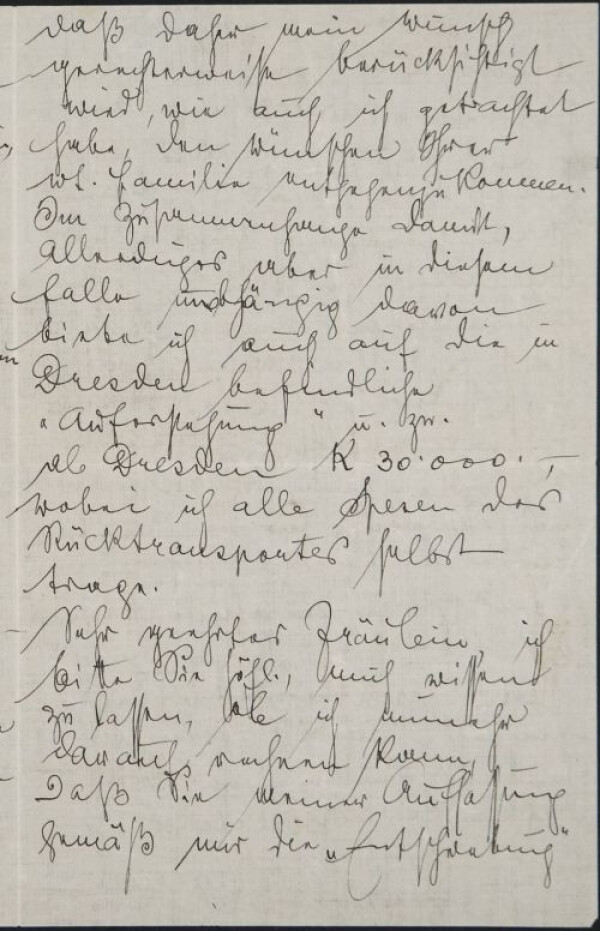 daß daher mein Wunsch
gerechterweise berücksichtigt
wird, wie auch ich getrachtet
habe, den Wünschen Ihrer
wt. Familie entgegenzukommen.
Im Zusammenhange damit,
allerdings aber in diesem
Falle unabhängig davon
biete ich auch auf die in
Dresden befindliche
"Auferstehung" u. zw.
ab Dresden K 30.000.-,
wobei ich alle Spesen des
Rücktransportes selbst
trage.
Sehr geehrtes Fräulein, ich
bitte Sie höfl., mich wissen
zu lassen, ob ich nunmehr
darauf rechnen kann,
daß Sie meiner Auffassung
gemäß mir die „Entschwebung"